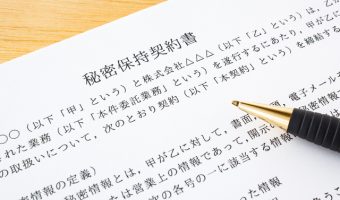 秘密保持契約書
○○（以下「甲」という）と株式会社△△△（以下「乙」という）は、
された業務（以下「本件委託業務」という）を遂行するにあたり、甲が乙に
の取扱いについて、次のとおり契約（以下「本契約」という）を締結する
密情報の定義）
密情報とは、甲が乙に対して、書面、電子メール
たは営業上の情報であって、開示の
次の各号の一に該当する情報
情報